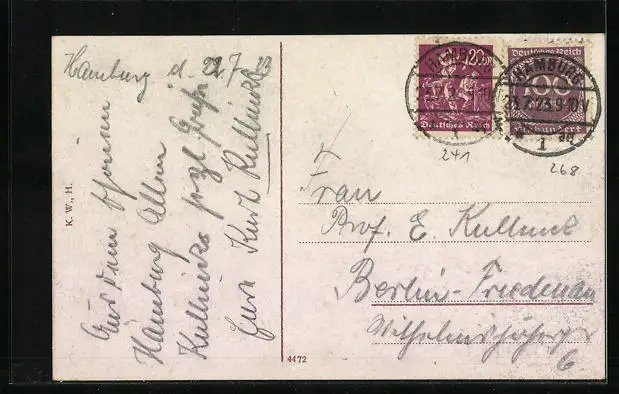 Hamburg d. 22.7.23
Aus dem schönen
Hamburg Allen
Kullnicks herzl. Grüße
Euer Kurt Kullnick
K. W., H.
4472
20 M
Deutsches Reich
HAMBURG
Deutsches Reich
100
Einhundert
HAMBURG
7.23.9-10V
1
241
268
Frau
Prof. E. Kullnick
Berlin-Friedenau
Wilhelmshöherstr.
6